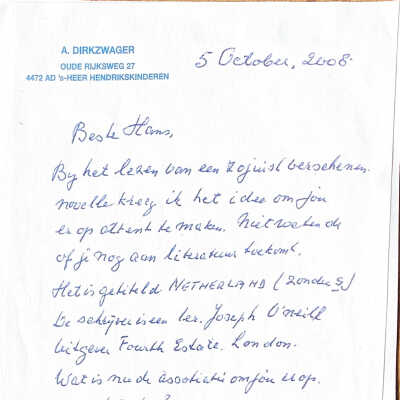 A. DIRKZWAGER
OUDE RIJKSWEG 27
4472 AD 's-HEER HENDRIKSKINDEREN
5 October, 2008.
Beste Hans,
By het lezen van een zojuist verschenen
novelle kreeg ik het idee om jou
er op attent te maken. Niet wetende
of je nog aan literatuur toekomt.
Het is getiteld NETHERLAND (zonder S)
De schrijver is een Ier. Joseph O'neill
Uitgever Fourth Estate. London.
Wat is nu de associatie om jou er op.